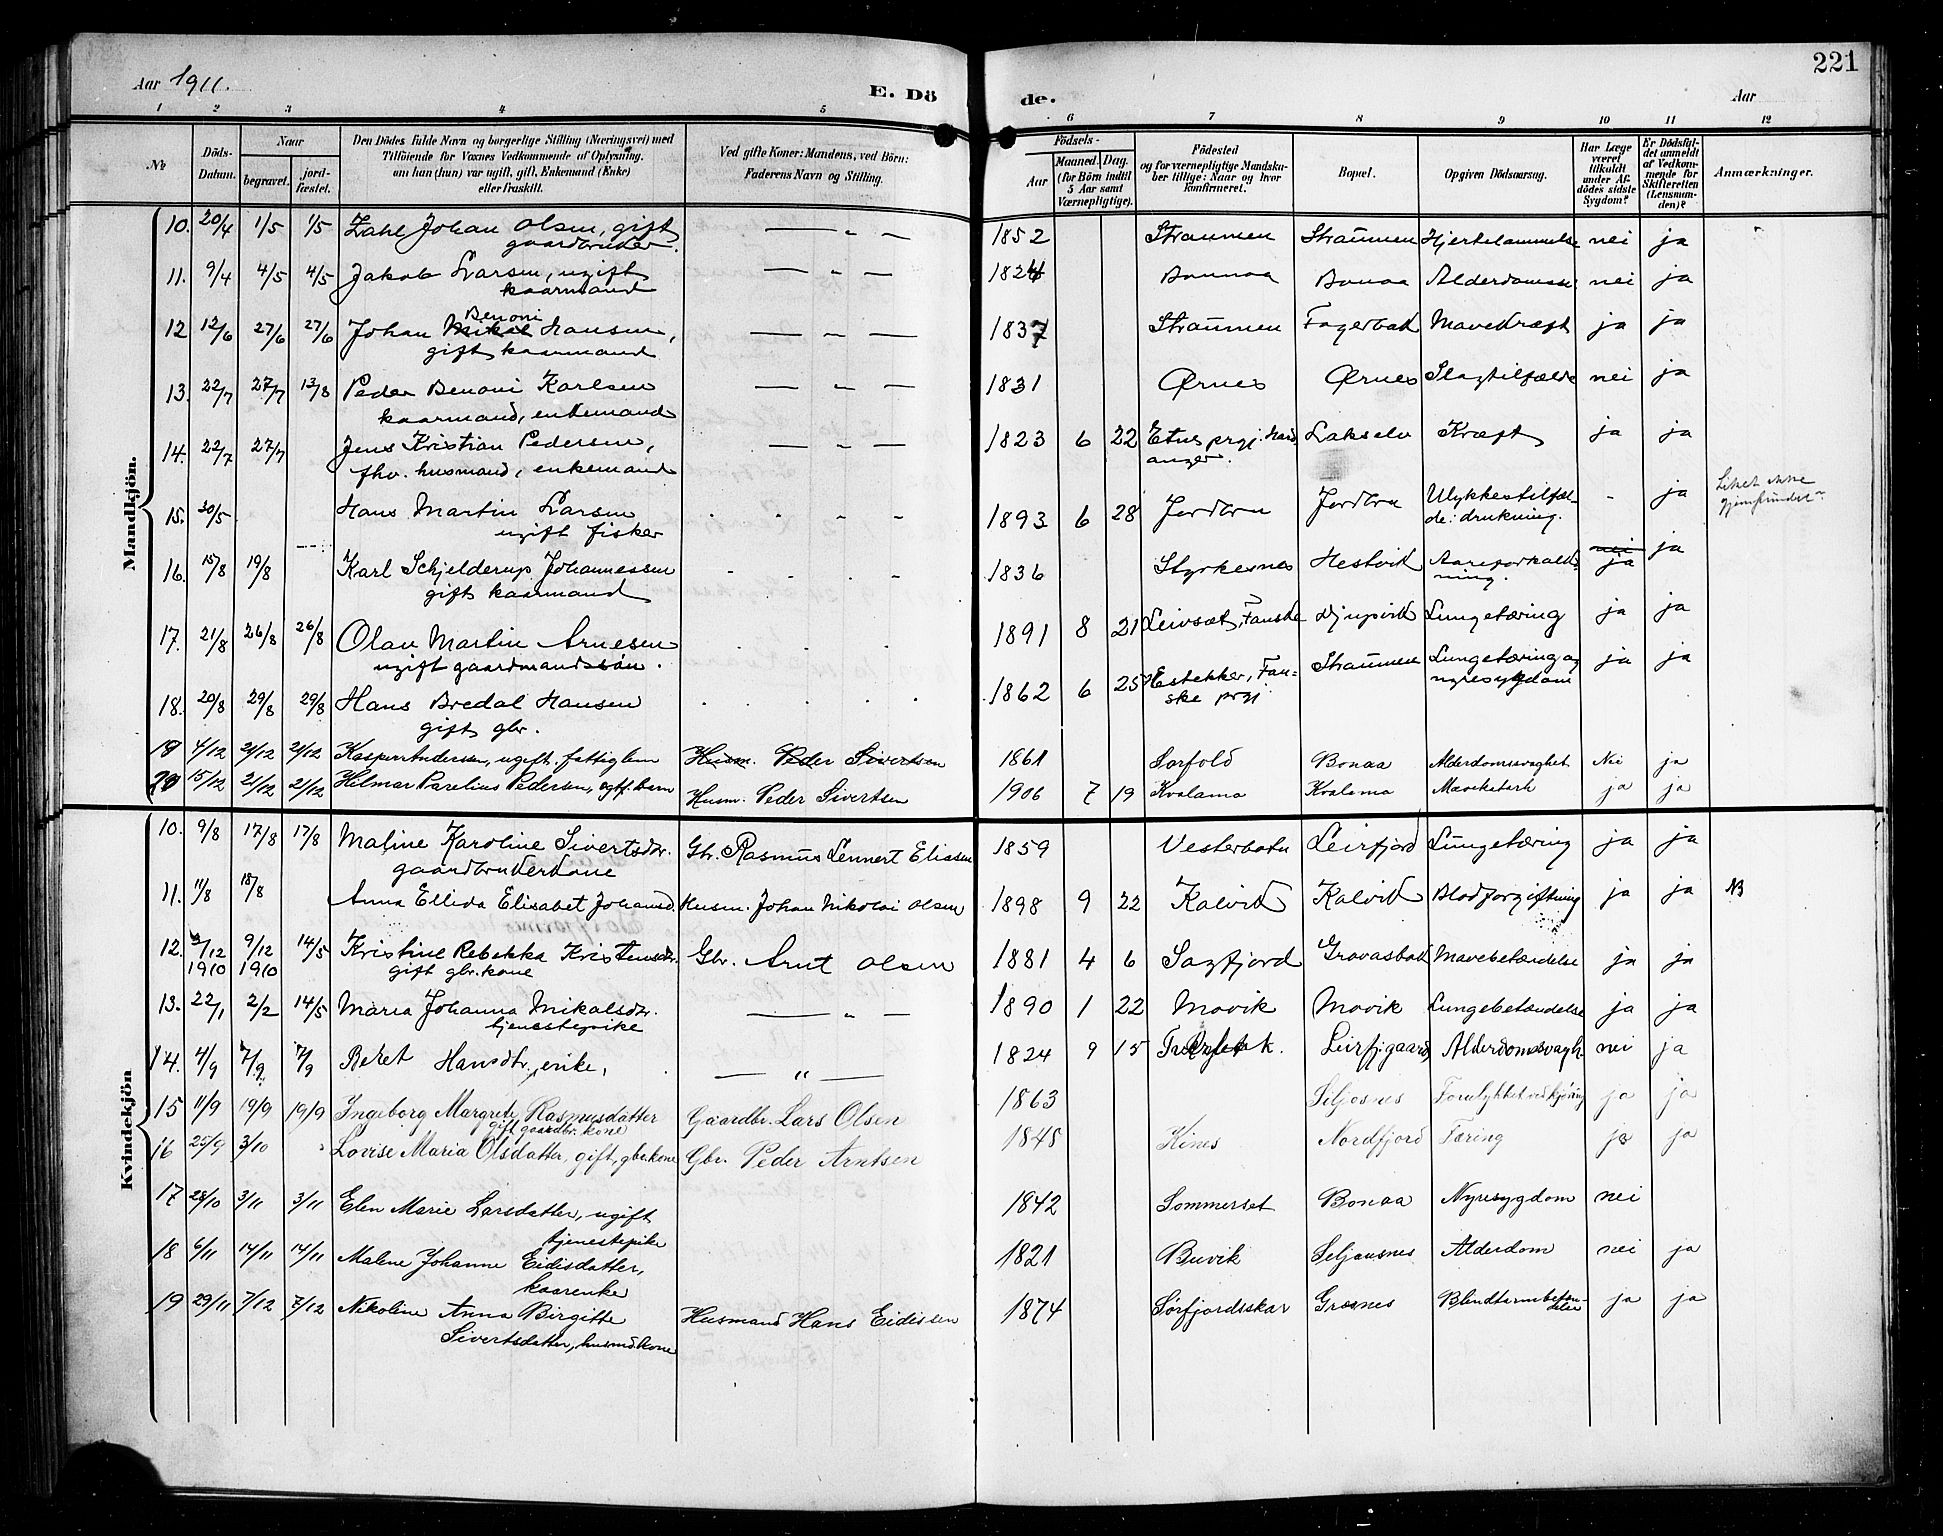 221
Aar 1911.
E. Dö
de.
Aar
1 2 3 4 5 6 7 8 9 10 11 12
No
Döds-Datum.
Naar
begravet.
jord-fæstet.
Den Dödes fulde Navn og borgerlige Stilling (Næringsvei) med
Tilföiende for Voxnes Vedkommende af Oplysning,
om han (hun) var ugift, gift, Enkemand (Enke)
eller fraskilt.
Ved gifte Koner: Mandens, ved Börn:
Faderens Navn og Stilling.
Födsels-
Aar
Maaned. Dag.
(for Börn indtil
5 Aar samt
Værnepligtige).
Födested
og for værnepligtige Mandsku-
ber tillige: Naar og hvor
konfirmeret.
Bopæl.
Opgiven Dödsaarsag.
Har Læge
været
tilkaldt
under Af-
dödes sidste
Sygdom?
Er Dödsfal-
det anmeldt
af Vedkom-
mende for
Skifteretten
(Lensman-
den)?
Anmærkninger.
Mandkjön.
10. 20/4 1/5 1/5 Zahl Johan Olsen, gift — „ — 1852 Straumen Straumen Hjertelammelse nei ja
gaardbruker.
11. 9/4 4/5 4/5 Jakob Larsen, ugift — „ — 1824 Bonnaa Bonaa Alderdomssv. nei ja
kaarmand
Benoni
12 12/6 27/6 27/6 Johan Mikal Hansen, — „ — 1837 Straumen Fagerbak Mavekræft ja ja
gift kaarmand
13. 22/7 27/7 13/8 Peder Benoni Karlsen — „ — 1831 Ørnes Ørnes Slagtilfælde nei ja
kaarmand, enkemand
14. 22/7 27/7 Jens Kristian Pedersen, — „ — 1823 6 22 Etne prgj. Hard Lakselv Kræft ja ja
anger.
fhv. husmand, enkemand
15. 30/5 Hans Martin Larsen „ „ „ 1893 6 28 Jordbru Jordbru Ulykkestilfæl- - ja Liket ikke
de: drukning. gjenfundet
ugift fisker
16. 15/8 19/8 Karl Schjelderup Johannessen 1836 Styrkesnes Hestvik Aareforkalk- nei ja
ning. ja
gift kaarmand
17. 21/8 26/8 26/8 Olav Martin Arnesen 1891 8 21 Leivset, Fauske Djupvik Lungetæring ja ja
ugift gaardmandssøn.
18. 20/8 29/8 29/8 Hans Bredal Hansen 1862 6 25 Hestekker, Fau- Straumen Lungetæring og ja ja
ske prgj. nyresygdom
gift gbr.
19 4/12 21/12 21/12 Kasper Andersen, ugift. fattiglem Husm. Peder Sivertsen 1861 Sørfold Bonaa Alderdomssvaghet Nei ja
20 15/12 21/12 21/12 Hilmar Parelius Pedersen, barn Husm. Peder Sivertsen 1906 7 19 Kvalama Kvalama ja ja
Kvindekjön
10. 9/8 17/8 17/8 Maline Karoline Sivertsdtr. Gbr. Rasmus Lennert Eliasen 1859 Vesterbotn Leirfjord Lungetæring ja ja
gaardbrukerkone
11. 11/8 18/8 Anna Ellida Elisabet Johansd. Husm. Johan Nikolai Olsen 1898 9 22 Kalvik Kalvik Blodforgiftning ja ja NB
12. 2/12 9/12 14/5 Kristine Rebekka Kristensdtr. Gbr. Arnt Olsen 1881 4 6 Sagfjord Gravasbak Mavebetændelse ja ja
1910 1910 gift gbr.kone
13. 22/1 2/2 14/5 Maria Johanna Mikalsdtr. — „ — 1890 1 22 Movik Movik Lungebetændelse ja ja
tjenestepike
14. 4/9 7/9 7/9 Beret Hansdtr, enke, — „ — 1824 9 15 Leirfj.gaard Alderdomssvagh. nei ja
15 11/9 19/9 19/9 Ingeborg Margrete Rasmusdatter Gaardbr. Lars Olsen 1863 Siljosnes Forulykket ved kjöring ja ja
gift gaardbr. kone
16 25/9 3/10 „ Lovise Maria Olsdatter, gift, gbr.kone Gbr. Peder Arntsen 1845 Kines Nordfjord Tæring ja ja
17 28/10 3/11 3/11 Elen Marie Larsdatter, ugift 1842 Sommerset Bonaa Nyresygdom nei
tjenestepike
18 6/11 14/11 14/11 Malene Johanne Eidisdatter, 1821 Buvik Seljeasnes Alderdom nei ja
kaarenke
19 29/11 7/12 7/12 Nikoline Anna Birgitte Husmand Hans Eidissen 1874 Sörfjordsskar Grasnes Blindtarmbetæn- ja ja
delse
Sivertsdatter, husmd.kone